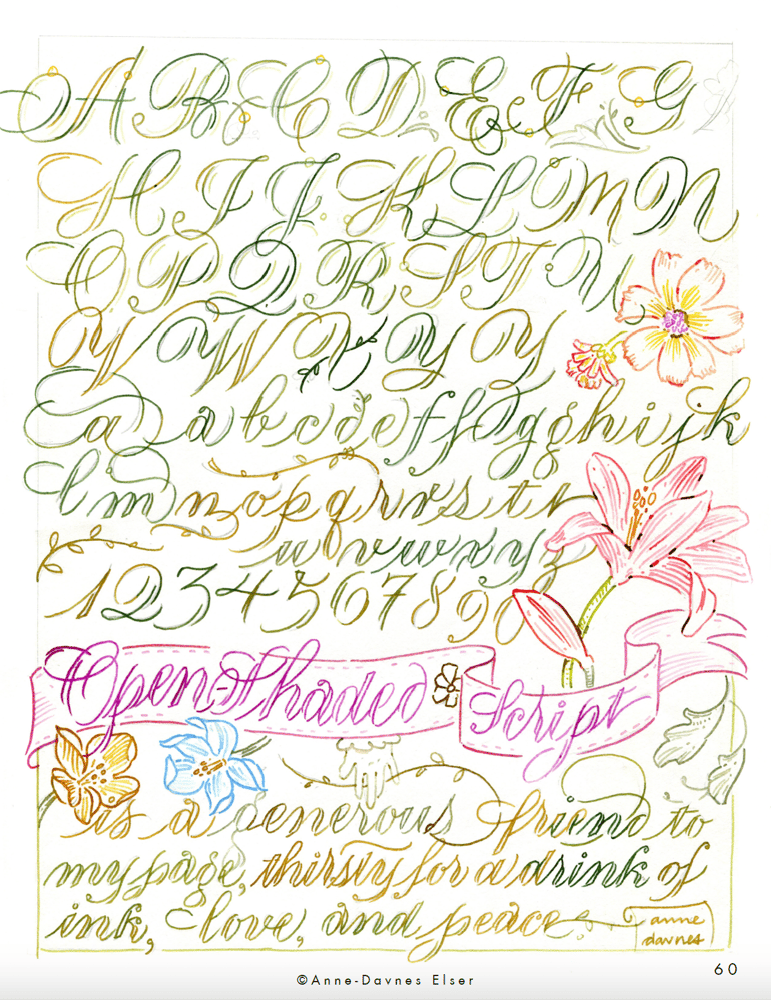 A B C D E F G
H I J K L M N
O P Q R S T U
V W X Y Y
a a b c d e f f g g h i j k
l m n o p q r r s s t t
u v w x y z
1 2 3 4 5 6 7 8 9 0
Open-Shaded Script
is a generous friend to
my page, thirsty for a drink of
ink, love, and peace
anne
davnes
60
©Anne-Davnes Elser